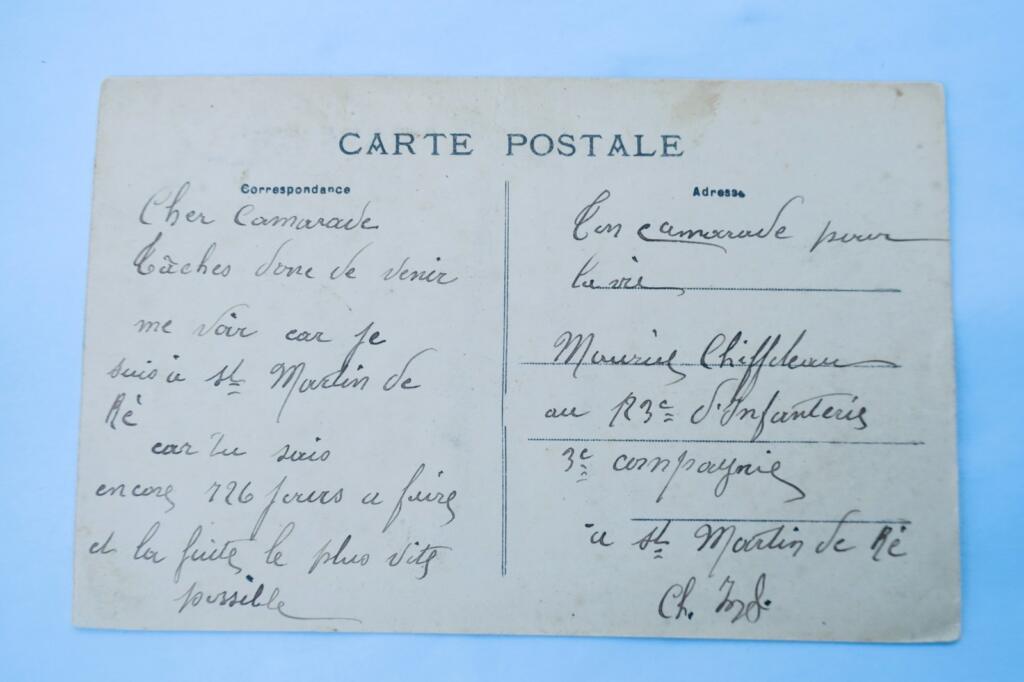 CARTE POSTALE
Correspondance
Cher Camarade
tâches donc de venir
me voir car je
suis à St Martin de
Ré
car tu sais
encore 726 jours a faire
et la fuite le plus vite
possible
Adresse
Ton camarade pour
la vie
Maurice Chiffoleau
au 123e d'Infanterie
3e compagnie
à St Martin de Ré
Ch. Inf.